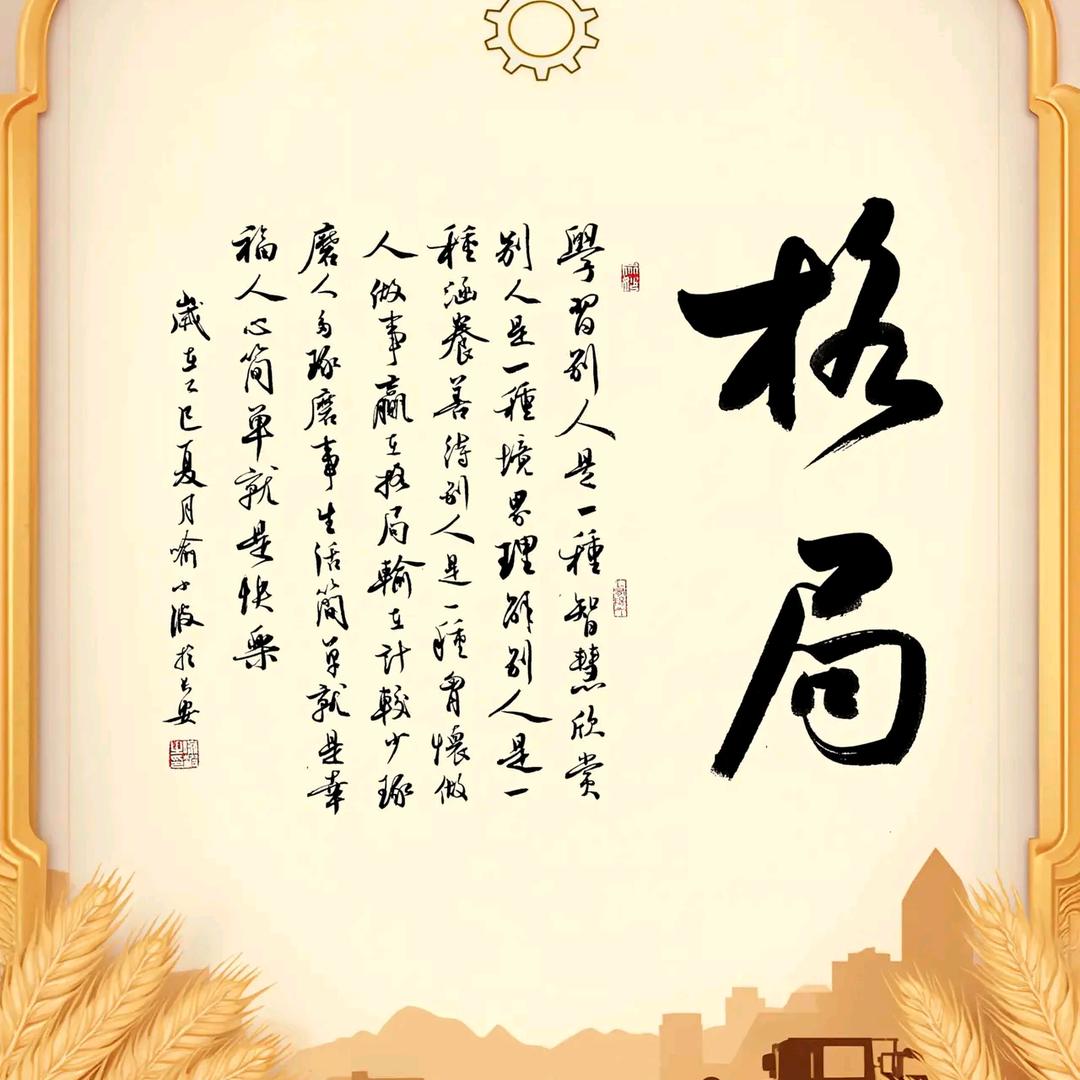 格局
學習别人是一種智慧欣赏
别人是一種境界理解别人是一
種涵養善待别人是一種胷懷做
人做事赢在格局輸在計較少琢
磨人多琢磨事生活簡單就是幸
福人心简单就是快樂
歲在乙巳夏月喻小波於长安